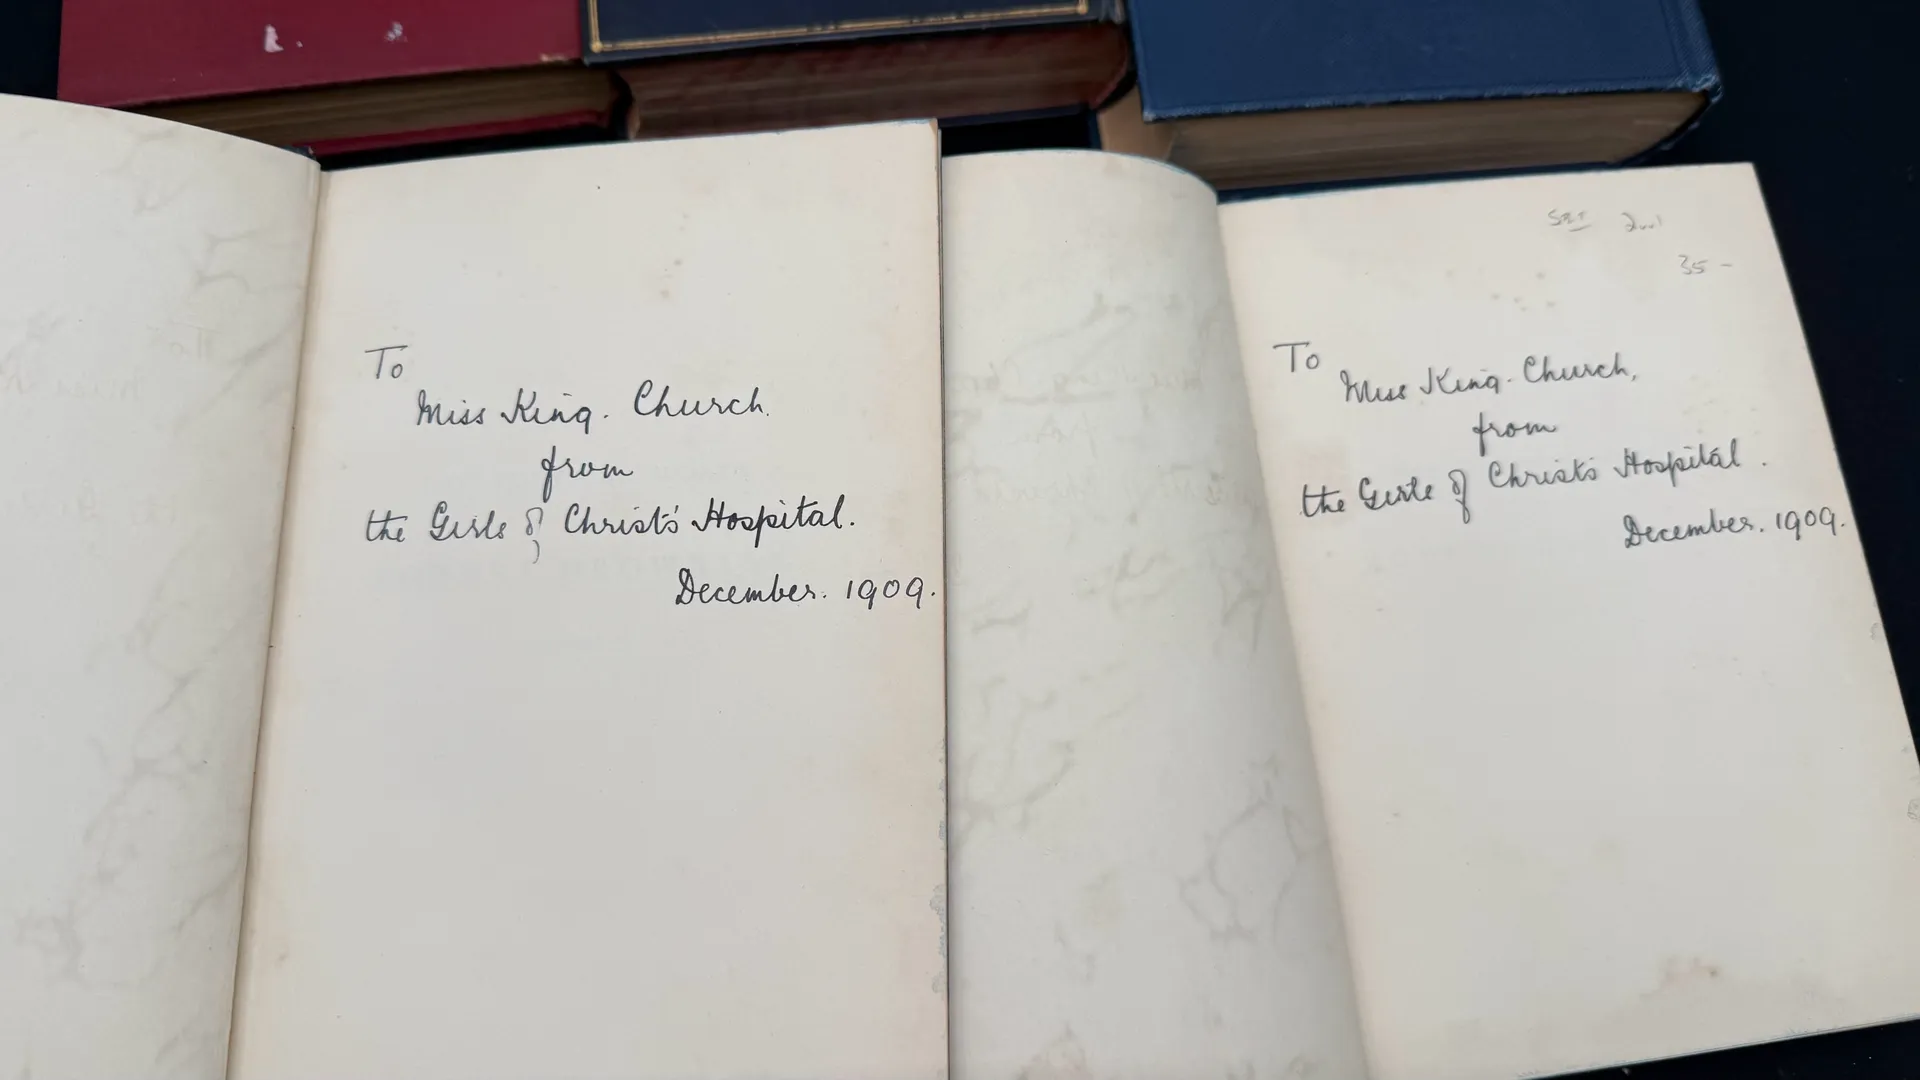 To
Miss King. Church.
from
the Girls of Christ's Hospital.
December. 1909.
35 -
To
Miss King. Church,
from
the Girls of Christ's Hospital.
December. 1909.